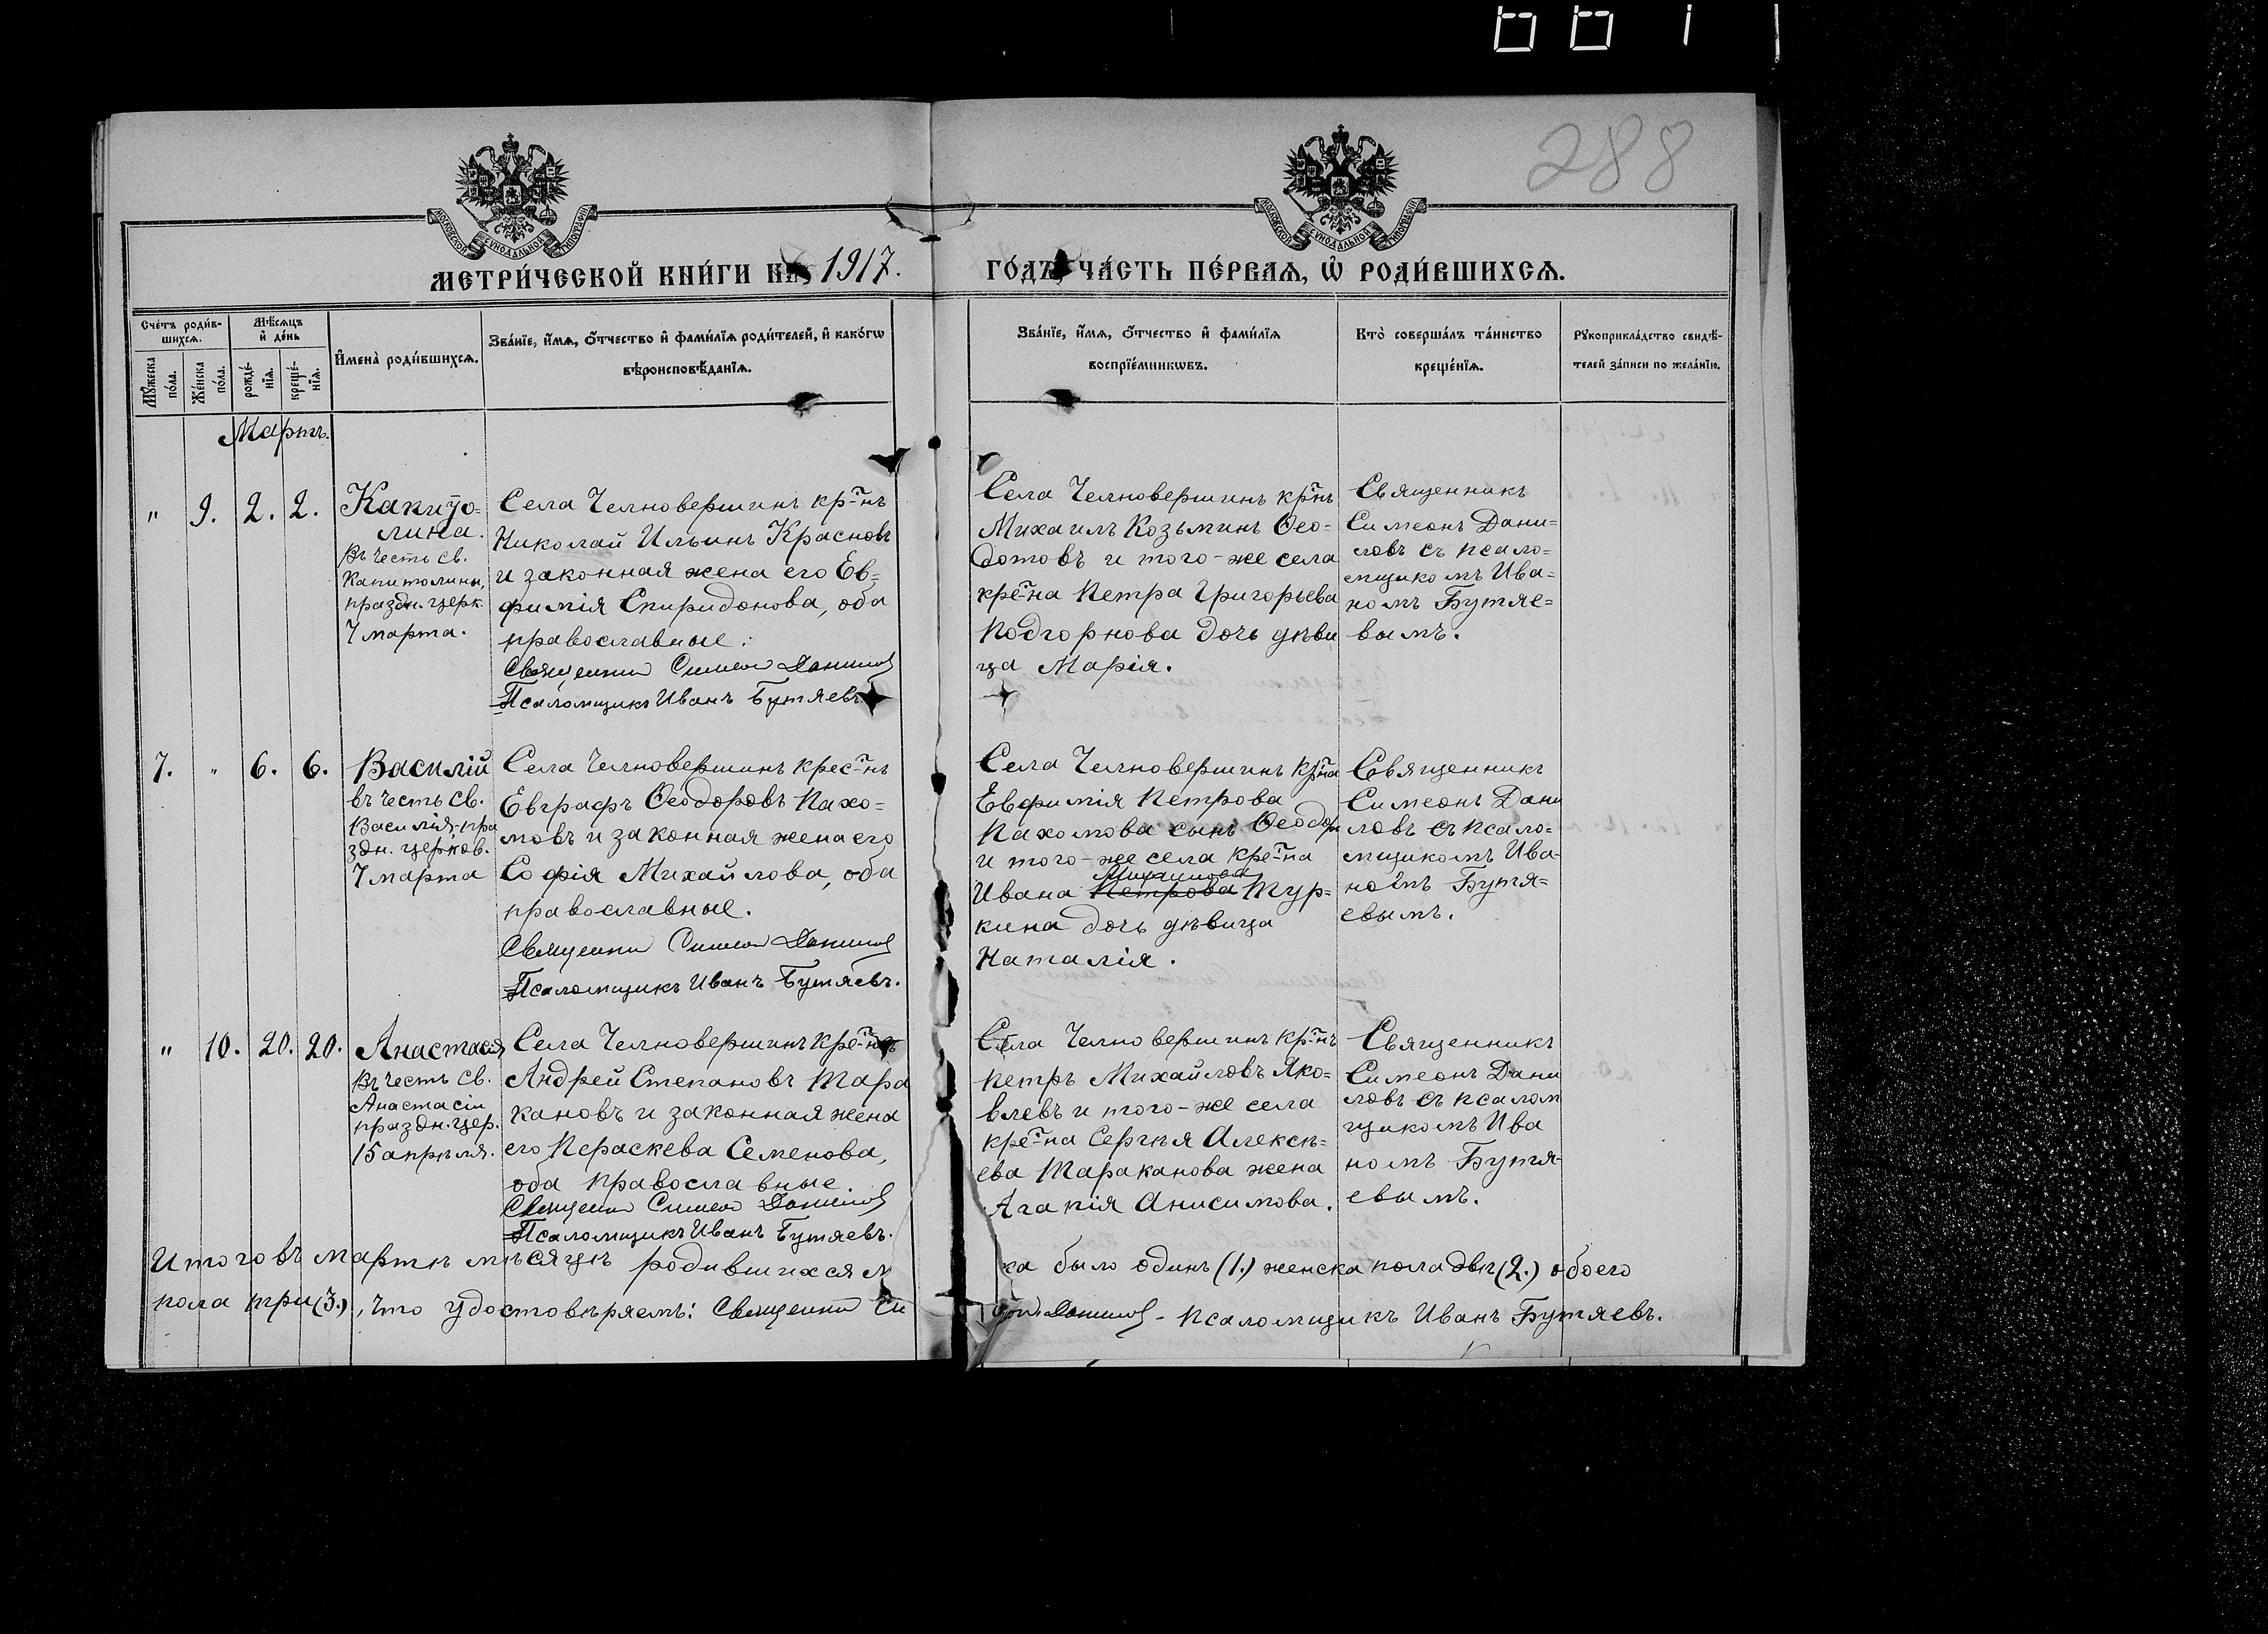 288
МОСКОВСКОЙ СУНОДАЛЬНОЙ ТИПОГРАФІИ
МОСКОВСКОЙ СУНОДАЛЬНОЙ ТИПОГРАФІИ
МЕТРИ́ЧЕСКОЙ КНИ́ГИ НА 1917. ГО́ДЪ, ЧА́СТЬ ПЕ́РВАѦ, Ѽ РОДИ́ВШИХСѦ.
Сче́тъ роди́в-
шихсѧ.
Мꙋ́жеска по́ла.
Же́нска по́ла.
Мѣ́сѧцъ
и҆ де́нь
рожде́-нїѧ.
креще́-нїѧ.
И҆мена̀ роди́вшихсѧ.
Зва́нїе, и҆́мѧ, ѻ҆́тчество и҆ фами́лїѧ роди́телей, и҆ како́гѡ
вѣроисповѣ́данїѧ.
Зва́нїе, и҆́мѧ, ѻ҆́тчество и҆ фами́лїѧ
воспрїе́мникѡвъ.
Кто̀ соверша́лъ та́инство
креще́нїѧ.
Рꙋкоприкла́дство свидѣ́-
телей за́писи по жела́нїю.
Мартъ.
" 9. 2. 2.
Капито=
лина.
Въ честь св.
Капитолины,
праздн. церк.
7 марта.
Села Челновершинъ кр-нъ
Николай Ильинъ Красновъ
и законная жена его Ев=
фимія Спиридонова, оба
православные.
Священникъ Симеонъ Даниловъ
Псаломщикъ Иванъ Бутяевъ.
Села Челновершинъ кр-нъ
Михаилъ Козьминъ Ѳео=
дотовъ и того-же села
кре-на Петра Григорьева
Подгорнова дочь дѣви
ца Марія.
Священникъ
Симеонъ Дани=
ловъ съ псало=
мщикомъ Ива=
номъ Бутяе=
вымъ.
7. " 6. 6.
Василій
въ честь св.
Василія, пра
здн. церков.
7 марта
Села Челновершинъ крес-нъ
Евграфъ Ѳеодоровъ Пахо=
мовъ и законная жена его
Софія Михайлова, оба
православные.
Священникъ Симеонъ Даниловъ
Псаломщикъ Иванъ Бутяевъ.
Села Челновершинъ кр-на
Евфимія Петрова
Пахомова сынъ Ѳеодоръ
и того-же села кре-на
Михаилова
Ивана Петрова Тур=
кина дочь дѣвица
Наталія.
Священникъ
Симеонъ Дани
ловъ съ псало=
мщикомъ Ива-
номъ Бутя=
евымъ.
" 10. 20. 20.
Анастасія
Въ честь св.
Анастасіи
праздн. цер.
15 апрѣля.
Села Челновершинъ кре-нъ
Андрей Степановъ Тара
кановъ и законная жена
его Пераскева Семенова,
оба православные.
Священникъ Симеонъ Даниловъ
Псаломщикъ Иванъ Бутяевъ.
Села Челновершинъ кр-нъ
Петръ Михайловъ Яко=
влевъ и того-же села
кре-на Сергѣя Алексѣ=
ева Тараканова жена
Агапія Анисимова.
Священникъ
Симеонъ Дани
ловъ съ псалом
щикомъ Ива
номъ Бутя-
евымъ.
Итого въ мартѣ мѣсяцѣ родившихся м ка было одинъ (1.) женска пола двѣ (2.) обоего
пола три (3.), что удостовѣряемъ: Священникъ Си Даниловъ - Псаломщикъ Иванъ Бутяевъ.